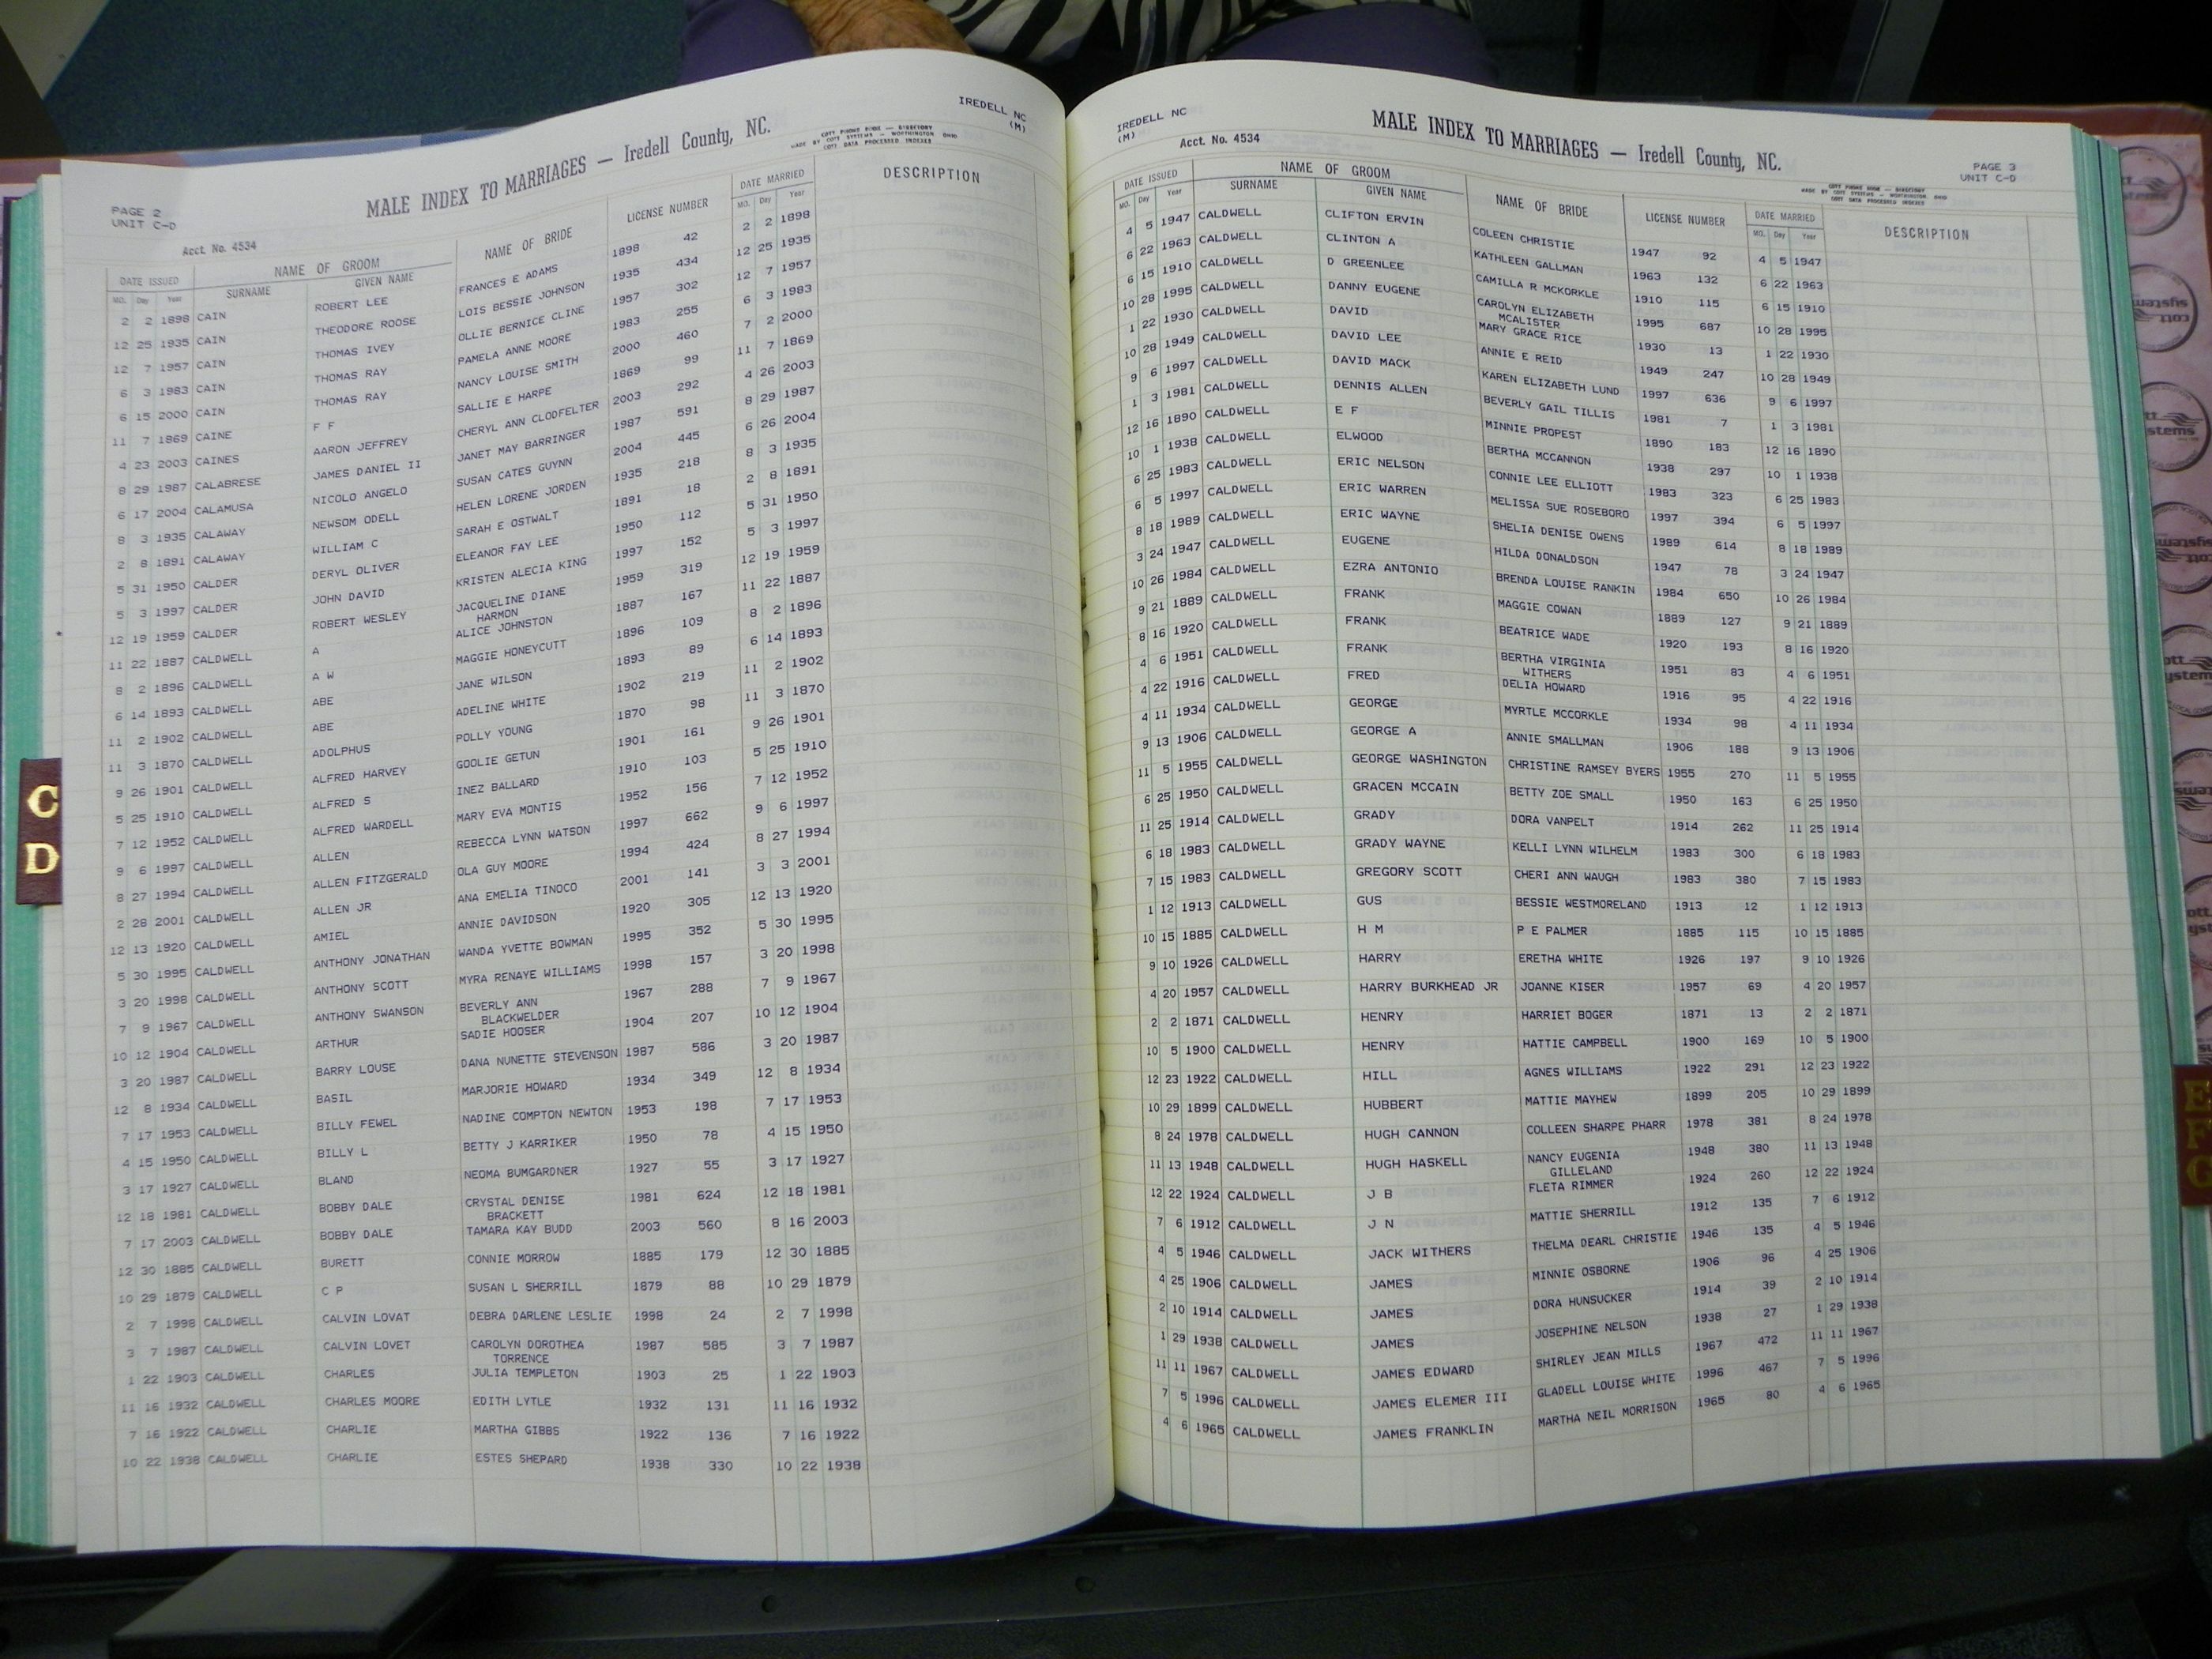 IREDELL NC
(M)
MALE INDEX TO MARRIAGES — Iredell County, NC.
COTT PHONE BOOK — DIRECTORY
MADE BY COTT SYSTEMS — WORTHINGTON OHIO
COTT DATA PROCESSED INDEXES
PAGE 2
UNIT C-D
Acct. No. 4534
DATE ISSUED NAME OF GROOM NAME OF BRIDE LICENSE NUMBER DATE MARRIED DESCRIPTION
MO. Day Year SURNAME GIVEN NAME MO. Day Year
2 2 1898 CAIN ROBERT LEE FRANCES E ADAMS 1898 42 2 2 1898
12 25 1935 CAIN THEODORE ROOSE LOIS BESSIE JOHNSON 1935 434 12 25 1935
12 7 1957 CAIN THOMAS IVEY OLLIE BERNICE CLINE 1957 302 12 7 1957
6 3 1983 CAIN THOMAS RAY PAMELA ANNE MOORE 1983 255 6 3 1983
6 15 2000 CAIN THOMAS RAY NANCY LOUISE SMITH 2000 460 7 2 2000
11 7 1869 CAINE F F SALLIE E HARPE 1869 99 11 7 1869
4 23 2003 CAINES AARON JEFFREY CHERYL ANN CLODFELTER 2003 292 4 26 2003
8 29 1987 CALABRESE JAMES DANIEL II JANET MAY BARRINGER 1987 591 8 29 1987
6 17 2004 CALAMUSA NICOLO ANGELO SUSAN CATES GUYNN 2004 445 6 26 2004
8 3 1935 CALAWAY NEWSOM ODELL HELEN LORENE JORDEN 1935 218 8 3 1935
2 8 1891 CALAWAY WILLIAM C SARAH E OSTWALT 1891 18 2 8 1891
5 31 1950 CALDER DERYL OLIVER ELEANOR FAY LEE 1950 112 5 31 1950
5 3 1997 CALDER JOHN DAVID KRISTEN ALECIA KING 1997 152 5 3 1997
12 19 1959 CALDER ROBERT WESLEY JACQUELINE DIANE 1959 319 12 19 1959
HARMON
11 22 1887 CALDWELL A ALICE JOHNSTON 1887 167 11 22 1887
8 2 1896 CALDWELL A W MAGGIE HONEYCUTT 1896 109 8 2 1896
6 14 1893 CALDWELL ABE JANE WILSON 1893 89 6 14 1893
11 2 1902 CALDWELL ABE ADELINE WHITE 1902 219 11 2 1902
11 3 1870 CALDWELL ADOLPHUS POLLY YOUNG 1870 98 11 3 1870
9 26 1901 CALDWELL ALFRED HARVEY GOOLIE GETUN 1901 161 9 26 1901
5 25 1910 CALDWELL ALFRED S INEZ BALLARD 1910 103 5 25 1910
7 12 1952 CALDWELL ALFRED WARDELL MARY EVA MONTIS 1952 156 7 12 1952
9 6 1997 CALDWELL ALLEN REBECCA LYNN WATSON 1997 662 9 6 1997
8 27 1994 CALDWELL ALLEN FITZGERALD OLA GUY MOORE 1994 424 8 27 1994
2 28 2001 CALDWELL ALLEN JR ANA EMELIA TINOCO 2001 141 3 3 2001
12 13 1920 CALDWELL AMIEL ANNIE DAVIDSON 1920 305 12 13 1920
5 30 1995 CALDWELL ANTHONY JONATHAN WANDA YVETTE BOWMAN 1995 352 5 30 1995
3 20 1998 CALDWELL ANTHONY SCOTT MYRA RENAYE WILLIAMS 1998 157 3 20 1998
7 9 1967 CALDWELL ANTHONY SWANSON BEVERLY ANN 1967 288 7 9 1967
BLACKWELDER
10 12 1904 CALDWELL ARTHUR SADIE HOOSER 1904 207 10 12 1904
3 20 1987 CALDWELL BARRY LOUSE DANA NUNETTE STEVENSON 1987 586 3 20 1987
12 8 1934 CALDWELL BASIL MARJORIE HOWARD 1934 349 12 8 1934
7 17 1953 CALDWELL BILLY FEWEL NADINE COMPTON NEWTON 1953 198 7 17 1953
4 15 1950 CALDWELL BILLY L BETTY J KARRIKER 1950 78 4 15 1950
3 17 1927 CALDWELL BLAND NEOMA BUMGARDNER 1927 55 3 17 1927
12 18 1981 CALDWELL BOBBY DALE CRYSTAL DENISE 1981 624 12 18 1981
BRACKETT
7 17 2003 CALDWELL BOBBY DALE TAMARA KAY BUDD 2003 560 8 16 2003
12 30 1885 CALDWELL BURETT CONNIE MORROW 1885 179 12 30 1885
10 29 1879 CALDWELL C P SUSAN L SHERRILL 1879 88 10 29 1879
2 7 1998 CALDWELL CALVIN LOVAT DEBRA DARLENE LESLIE 1998 24 2 7 1998
3 7 1987 CALDWELL CALVIN LOVET CAROLYN DOROTHEA 1987 585 3 7 1987
TORRENCE
1 22 1903 CALDWELL CHARLES JULIA TEMPLETON 1903 25 1 22 1903
11 16 1932 CALDWELL CHARLES MOORE EDITH LYTLE 1932 131 11 16 1932
7 16 1922 CALDWELL CHARLIE MARTHA GIBBS 1922 136 7 16 1922
10 22 1938 CALDWELL CHARLIE ESTES SHEPARD 1938 330 10 22 1938
C
D
IREDELL NC
(M)
Acct. No. 4534
MALE INDEX TO MARRIAGES — Iredell County, NC.
PAGE 3
UNIT C-D
COTT PHONE BOOK — DIRECTORY
MADE BY COTT SYSTEMS — WORTHINGTON OHIO
COTT DATA PROCESSED INDEXES
DATE ISSUED NAME OF GROOM NAME OF BRIDE LICENSE NUMBER DATE MARRIED DESCRIPTION
MO. Day Year SURNAME GIVEN NAME MO. Day Year
4 5 1947 CALDWELL CLIFTON ERVIN COLEEN CHRISTIE 1947 92 4 5 1947
6 22 1963 CALDWELL CLINTON A KATHLEEN GALLMAN 1963 132 6 22 1963
6 15 1910 CALDWELL D GREENLEE CAMILLA R MCKORKLE 1910 115 6 15 1910
10 28 1995 CALDWELL DANNY EUGENE CAROLYN ELIZABETH 1995 687 10 28 1995
MCALISTER
1 22 1930 CALDWELL DAVID MARY GRACE RICE 1930 13 1 22 1930
10 28 1949 CALDWELL DAVID LEE ANNIE E REID 1949 247 10 28 1949
9 6 1997 CALDWELL DAVID MACK KAREN ELIZABETH LUND 1997 636 9 6 1997
1 3 1981 CALDWELL DENNIS ALLEN BEVERLY GAIL TILLIS 1981 7 1 3 1981
12 16 1890 CALDWELL E F MINNIE PROPEST 1890 183 12 16 1890
10 1 1938 CALDWELL ELWOOD BERTHA MCCANNON 1938 297 10 1 1938
6 25 1983 CALDWELL ERIC NELSON CONNIE LEE ELLIOTT 1983 323 6 25 1983
6 5 1997 CALDWELL ERIC WARREN MELISSA SUE ROSEBORO 1997 394 6 5 1997
8 18 1989 CALDWELL ERIC WAYNE SHELIA DENISE OWENS 1989 614 8 18 1989
3 24 1947 CALDWELL EUGENE HILDA DONALDSON 1947 78 3 24 1947
10 26 1984 CALDWELL EZRA ANTONIO BRENDA LOUISE RANKIN 1984 650 10 26 1984
9 21 1889 CALDWELL FRANK MAGGIE COWAN 1889 127 9 21 1889
8 16 1920 CALDWELL FRANK BEATRICE WADE 1920 193 8 16 1920
4 6 1951 CALDWELL FRANK BERTHA VIRGINIA 1951 83 4 6 1951
WITHERS
4 22 1916 CALDWELL FRED DELIA HOWARD 1916 95 4 22 1916
4 11 1934 CALDWELL GEORGE MYRTLE MCCORKLE 1934 98 4 11 1934
9 13 1906 CALDWELL GEORGE A ANNIE SMALLMAN 1906 188 9 13 1906
11 5 1955 CALDWELL GEORGE WASHINGTON CHRISTINE RAMSEY BYERS 1955 270 11 5 1955
6 25 1950 CALDWELL GRACEN MCCAIN BETTY ZOE SMALL 1950 163 6 25 1950
11 25 1914 CALDWELL GRADY DORA VANPELT 1914 262 11 25 1914
6 18 1983 CALDWELL GRADY WAYNE KELLI LYNN WILHELM 1983 300 6 18 1983
7 15 1983 CALDWELL GREGORY SCOTT CHERI ANN WAUGH 1983 380 7 15 1983
1 12 1913 CALDWELL GUS BESSIE WESTMORELAND 1913 12 1 12 1913
10 15 1885 CALDWELL H M P E PALMER 1885 115 10 15 1885
9 10 1926 CALDWELL HARRY ERETHA WHITE 1926 197 9 10 1926
4 20 1957 CALDWELL HARRY BURKHEAD JR JOANNE KISER 1957 69 4 20 1957
2 2 1871 CALDWELL HENRY HARRIET BOGER 1871 13 2 2 1871
10 5 1900 CALDWELL HENRY HATTIE CAMPBELL 1900 169 10 5 1900
12 23 1922 CALDWELL HILL AGNES WILLIAMS 1922 291 12 23 1922
10 29 1899 CALDWELL HUBBERT MATTIE MAYHEW 1899 205 10 29 1899
8 24 1978 CALDWELL HUGH CANNON COLLEEN SHARPE PHARR 1978 381 8 24 1978
11 13 1948 CALDWELL HUGH HASKELL NANCY EUGENIA 1948 380 11 13 1948
GILLELAND
12 22 1924 CALDWELL J B FLETA RIMMER 1924 260 12 22 1924
7 6 1912 CALDWELL J N MATTIE SHERRILL 1912 135 7 6 1912
4 5 1946 CALDWELL JACK WITHERS THELMA DEARL CHRISTIE 1946 135 4 5 1946
4 25 1906 CALDWELL JAMES MINNIE OSBORNE 1906 96 4 25 1906
2 10 1914 CALDWELL JAMES DORA HUNSUCKER 1914 39 2 10 1914
1 29 1938 CALDWELL JAMES JOSEPHINE NELSON 1938 27 1 29 1938
11 11 1967 CALDWELL JAMES EDWARD SHIRLEY JEAN MILLS 1967 472 11 11 1967
7 5 1996 CALDWELL JAMES ELEMER III GLADELL LOUISE WHITE 1996 467 7 5 1996
4 6 1965 CALDWELL JAMES FRANKLIN MARTHA NEIL MORRISON 1965 80 4 6 1965
E
F
G
cott
systems